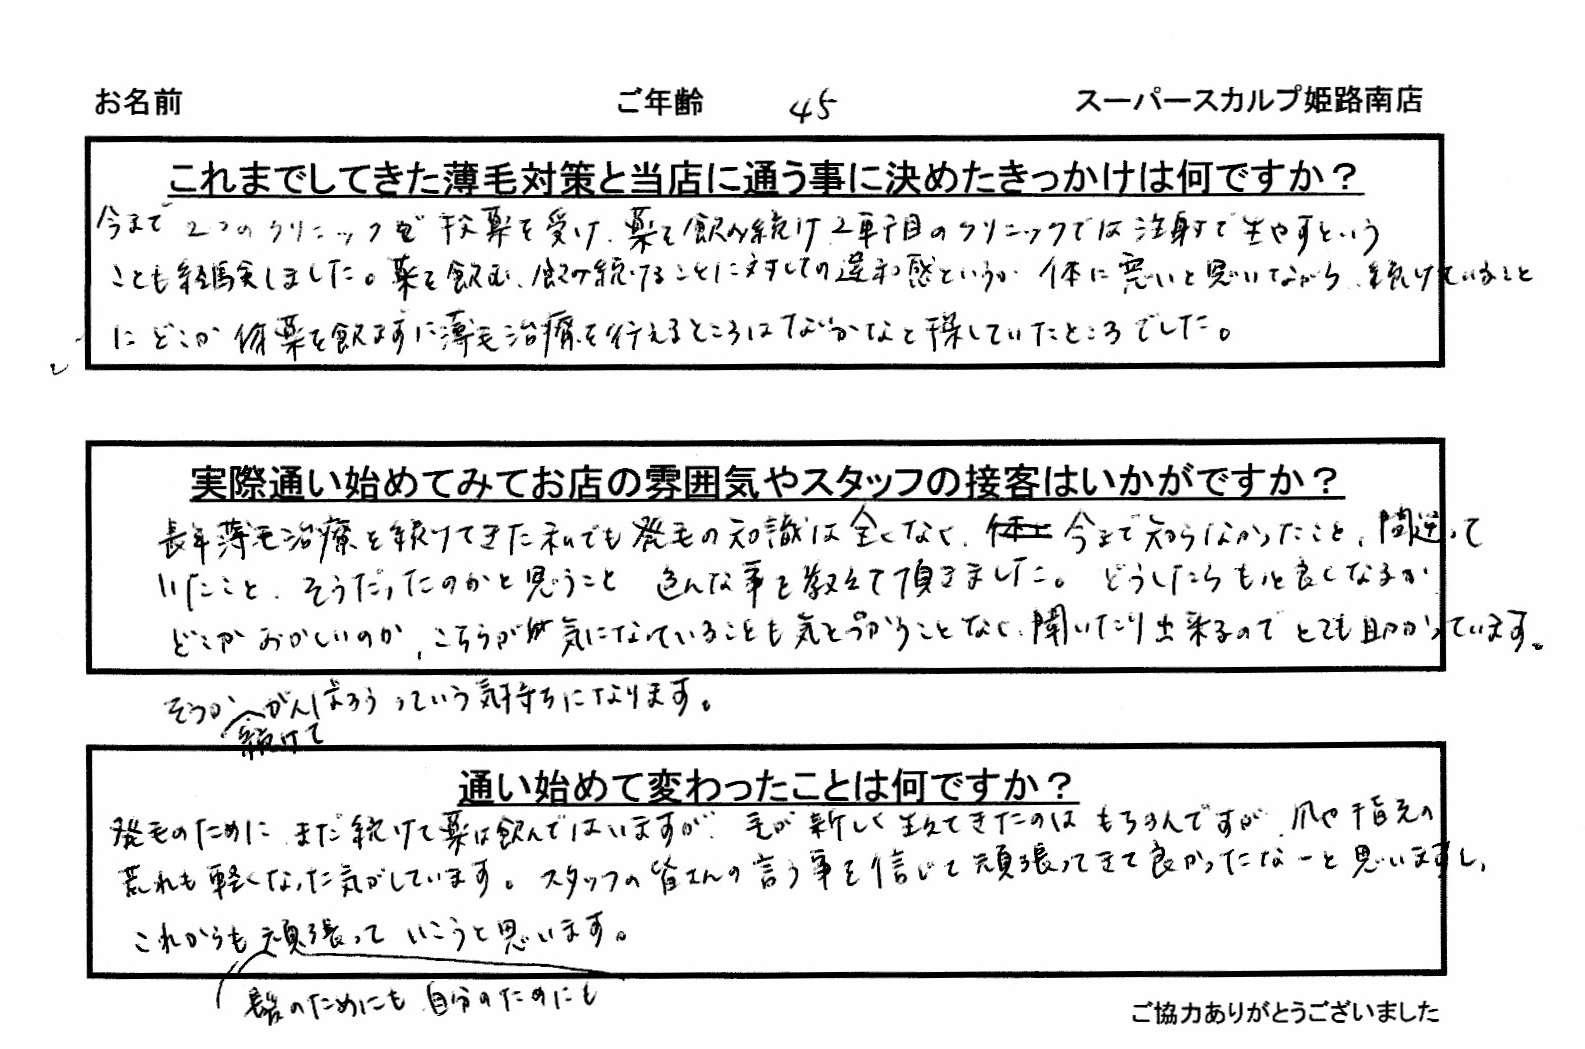 お名前 ご年齢 45 スーパースカルプ姫路南店
これまでしてきた薄毛対策と当店に通う事に決めたきっかけは何ですか？
今まで2つのクリニックで投薬を受け、薬を飲み続け、2軒目のクリニックでは注射で生やすという
ことも経験しました。薬を飲む、飲み続けることに対しての違和感というか 体に悪いと思いながら、続けていること
にどこか 薬を飲まずに薄毛治療を行えるところはないかなと探していたところでした。
実際通い始めてみてお店の雰囲気やスタッフの接客はいかがですか？
長年薄毛治療を続けてきた私でも発毛の知識は全くなく、今まで知らなかったこと、間違って
いたこと、そうだったのかと思うこと 色んな事を教えて頂きました。どうしたらもっと良くなるか
どこがおかしいのか、こちらが気になっていることも気を使うことなく、聞いたり出来るのでとても助かっています。
そうか がんばろうっていう気持ちになります。
続けて
通い始めて変わったことは何ですか？
発毛のために まだ続けて薬は飲んではいますが、毛が新しく生えてきたのはもちろんですが、爪や指先の
荒れも軽くなった気がしています。スタッフの皆さんの言う事を信じて頑張ってきて良かったなーと思いますし、
これからも頑張っていこうと思います。
髪のためにも 自分のためにも
ご協力ありがとうございました